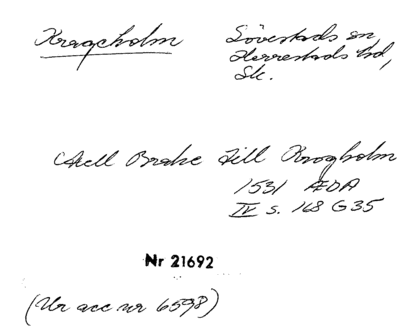 Krageholm
Sövestads sn,
Herrestads hd,
Sk.
Axell Brahe till Krogholm
1531 ÆDA
IV s. 168 G35
Nr 21692
(Ur acc nr 6598)